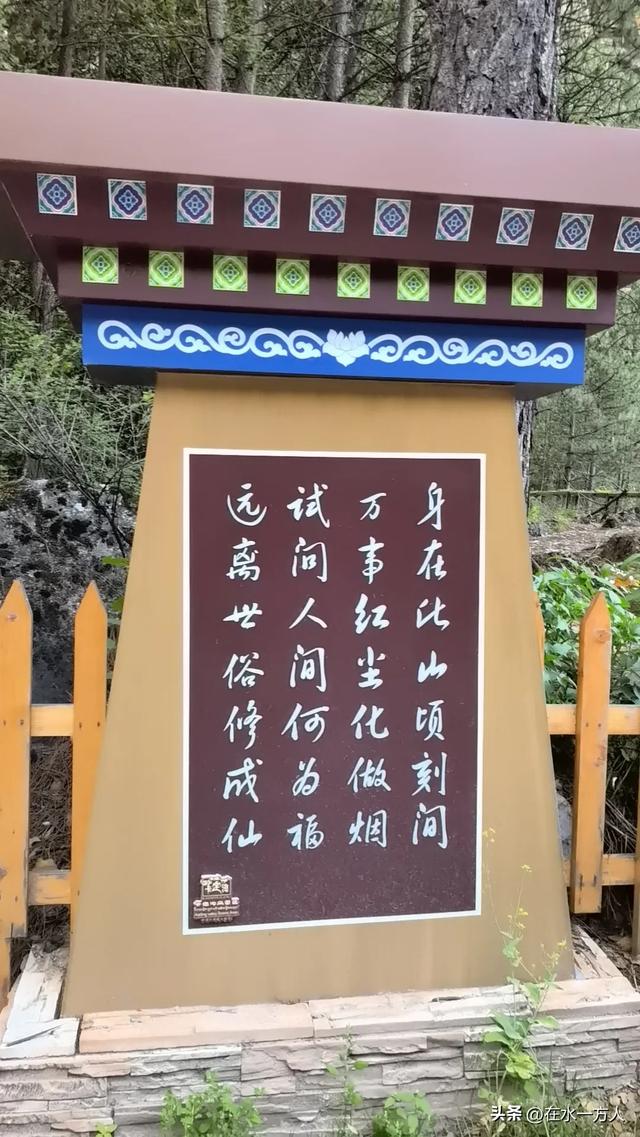 身在此山顷刻间
万事红尘化做烟
试问人间何为福
远离世俗修成仙
头条 @在水一方人